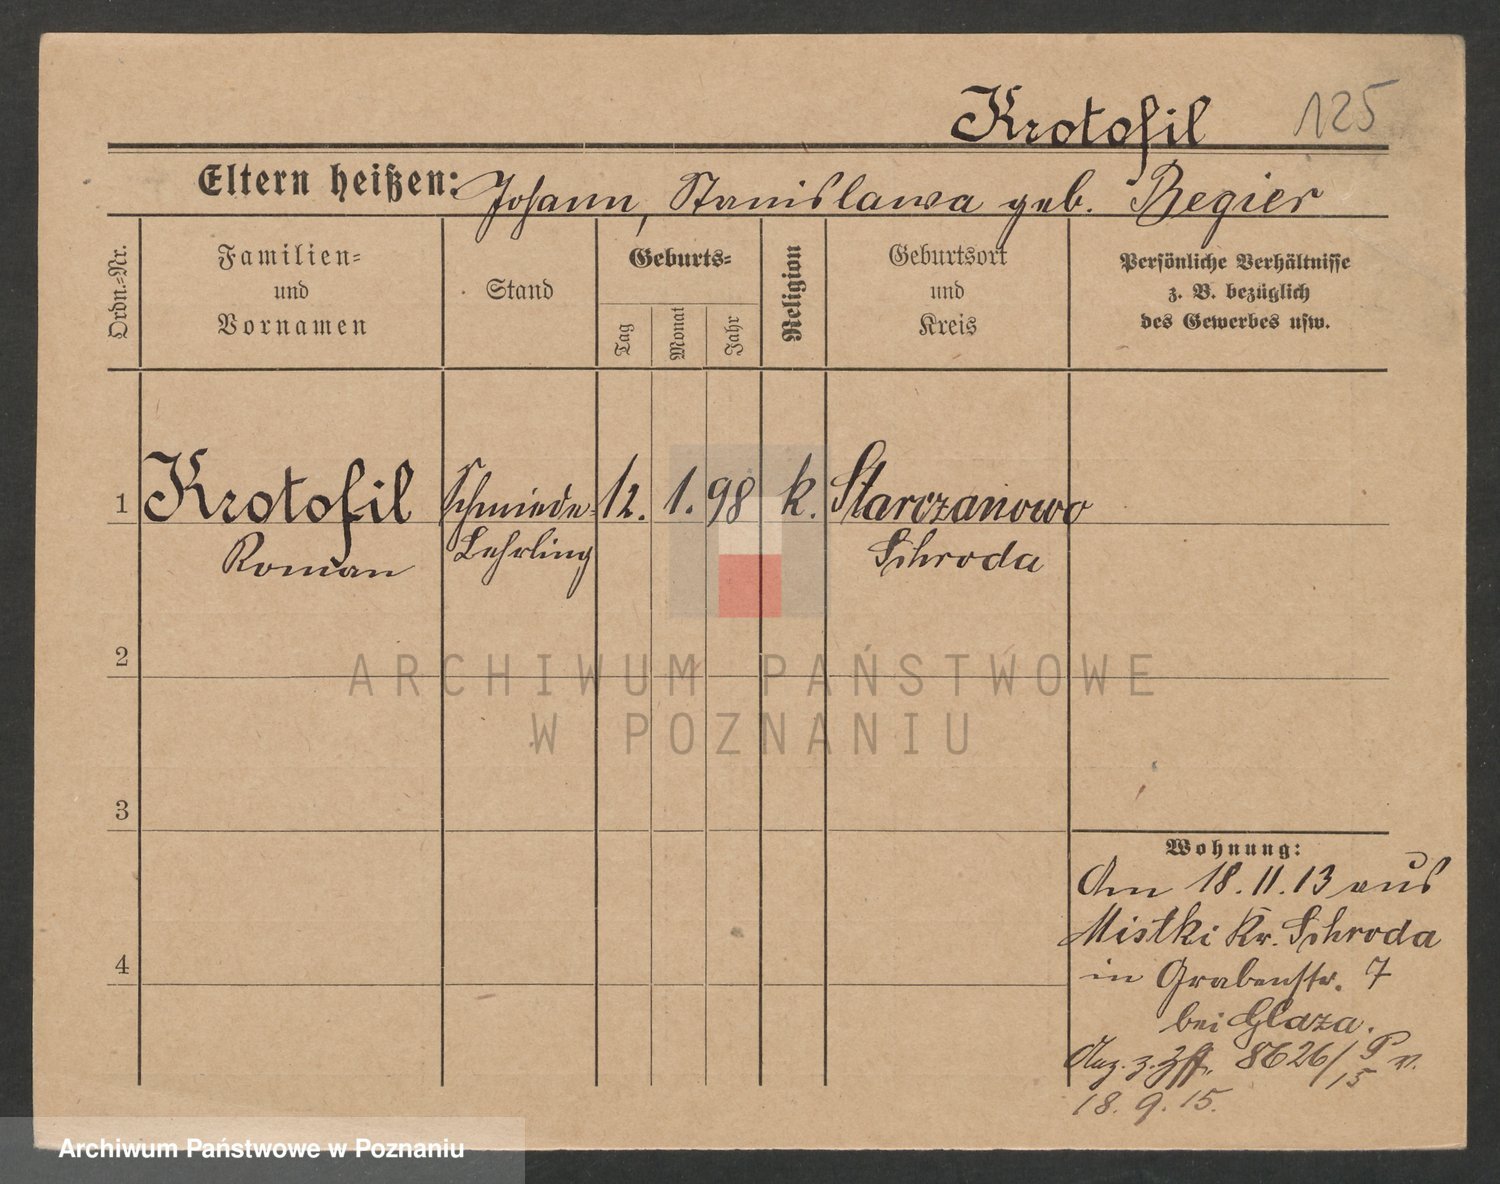 Krotofil 125
Eltern heißen: Johann, Stanislawa geb. Begier
Ordn.-Nr.
Familien-
und
Vornamen
Stand
Geburts-
Tag
Monat
Jahr
Religion
Geburtsort
und
Kreis
Persönliche Verhältnisse
z. B. bezüglich
des Gewerbes usw.
1 Krotofil Schmiede- 12. 1. 98 k. Starczanowo
Roman Lehrling Schroda
2
3
4
Wohnung:
Am 18.11.13 aus
Mistki Kr. Schroda
in Grabenstr. 7
bei Glaza.
z. 8626/15 P v.
18. 9. 15.
ARCHIWUM PAŃSTWOWE
W POZNANIU
Archiwum Państwowe w Poznaniu